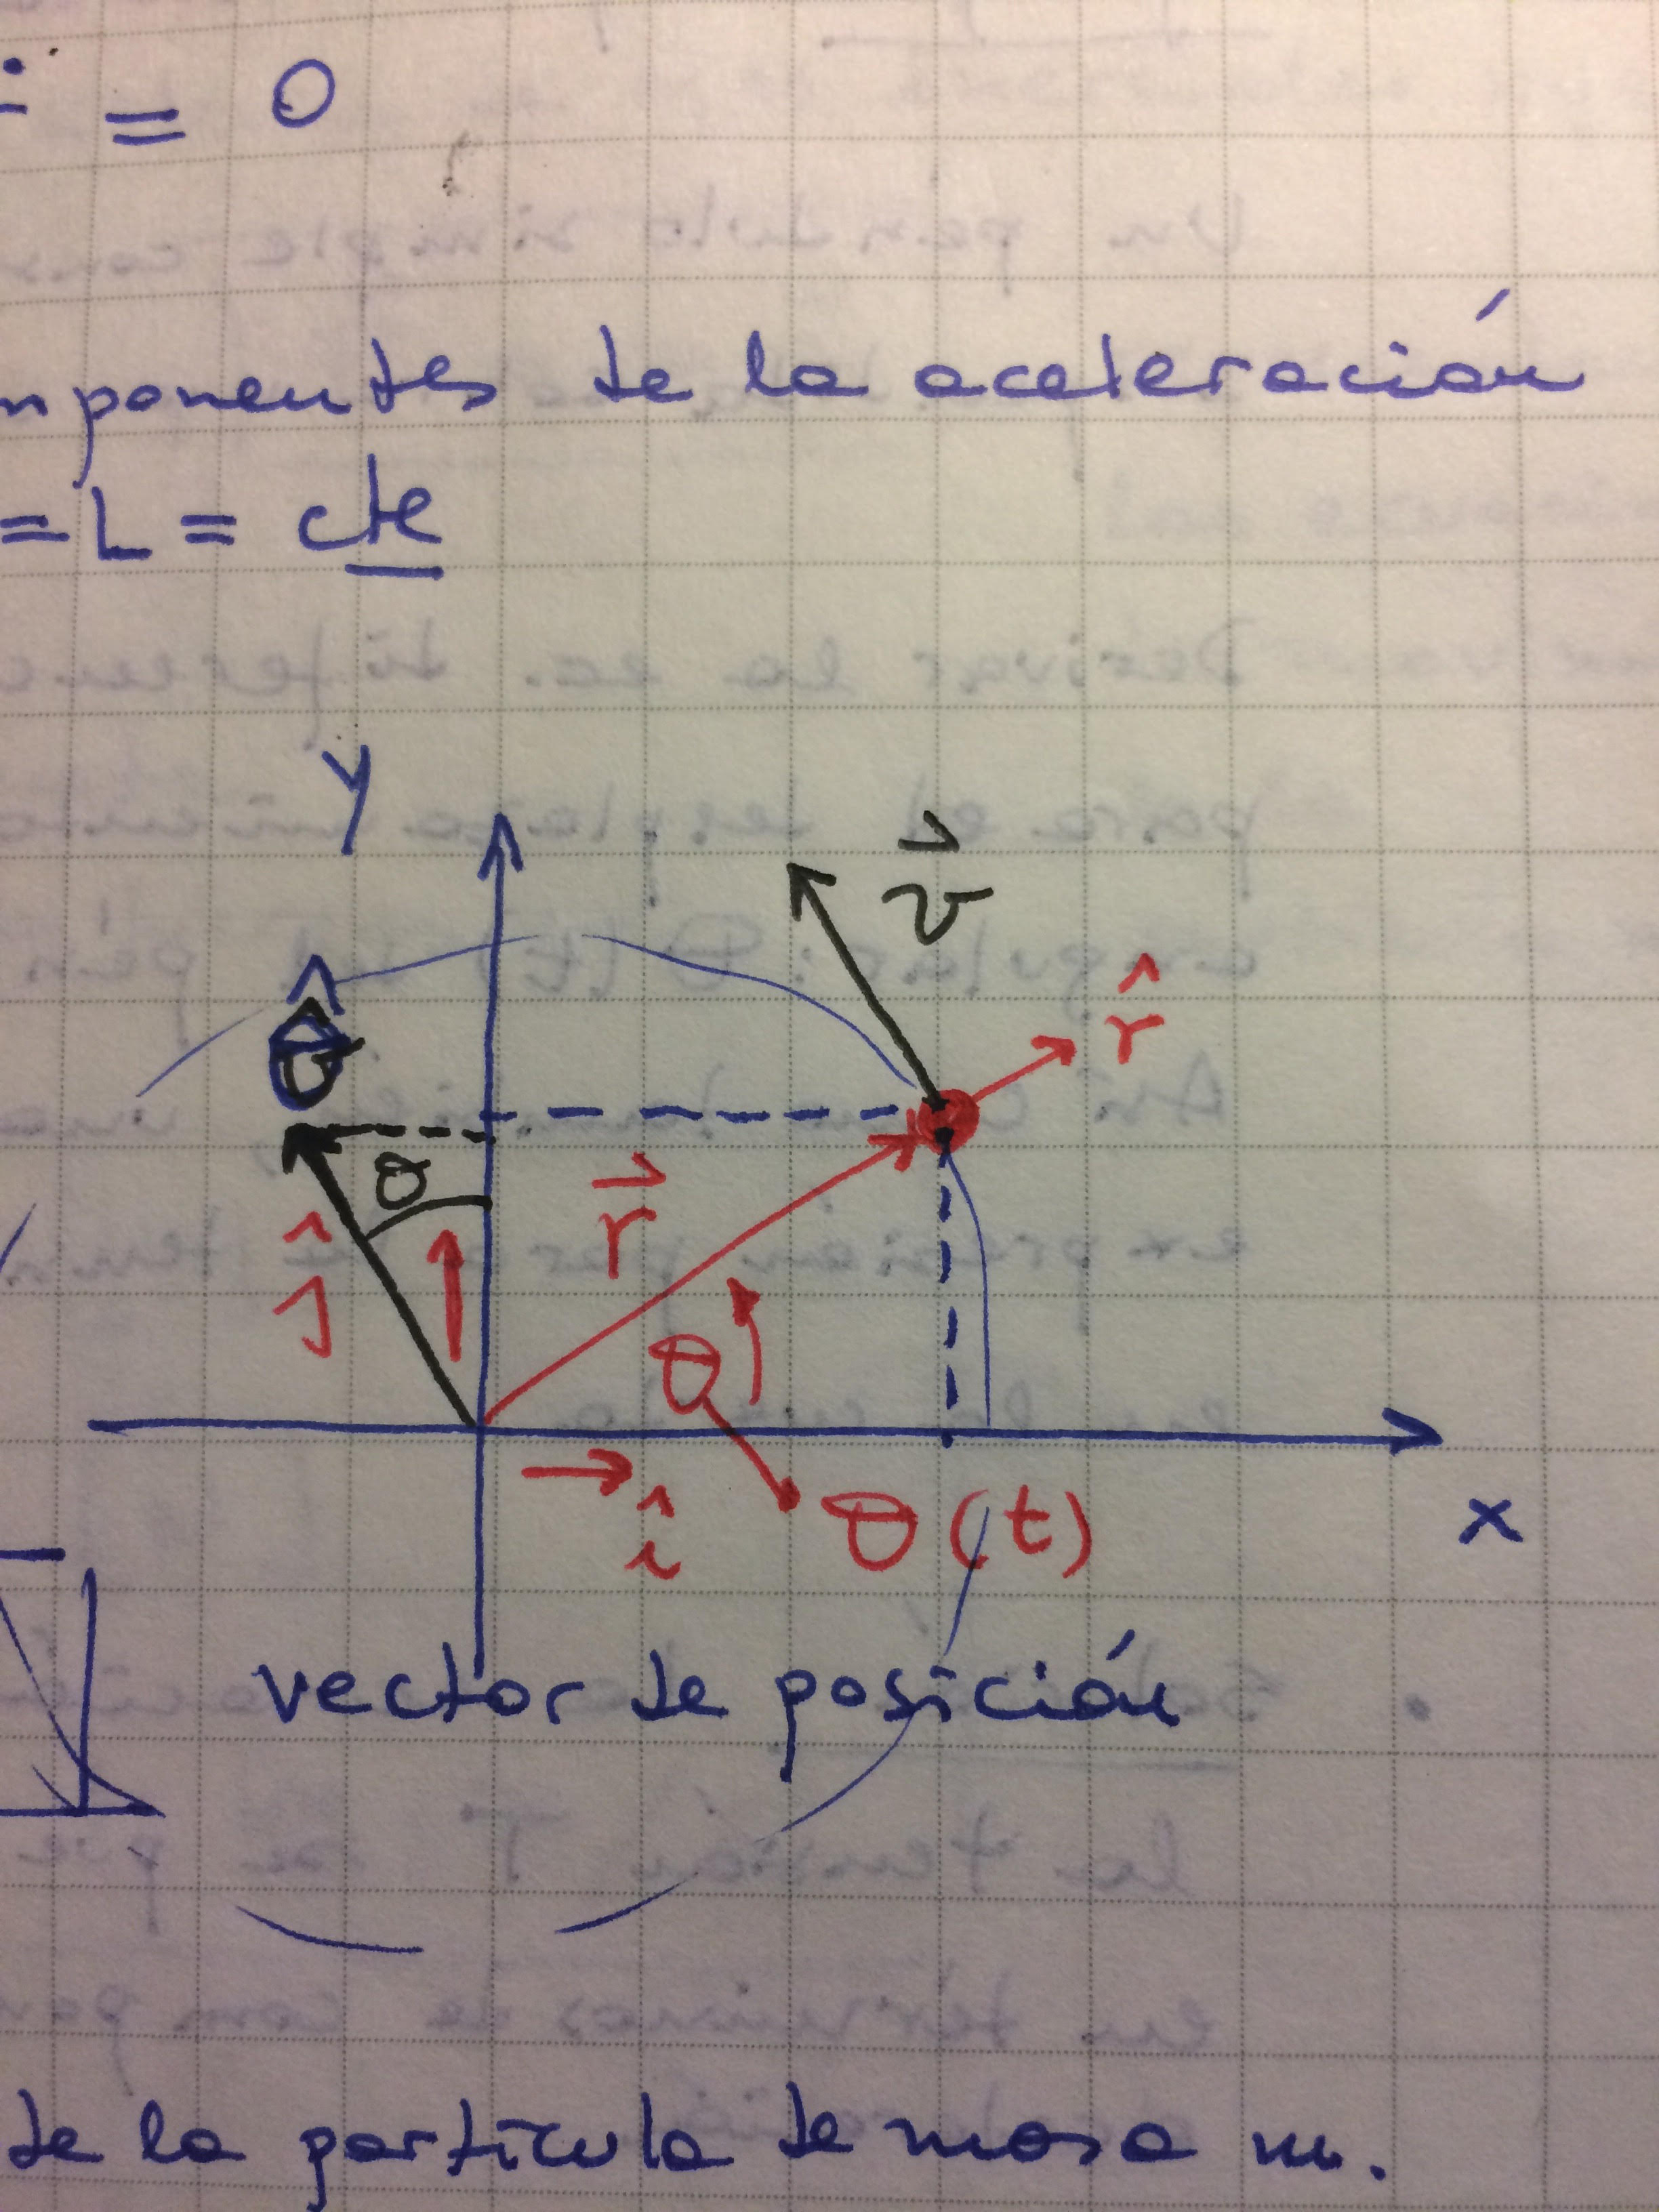 = 0
mponentes de la aceleración
= L = cte
y
v⃗
r̂
θ̂
θ
r⃗
ĵ
θ
î
θ(t)
x
vector de posición
de la partícula de masa m.